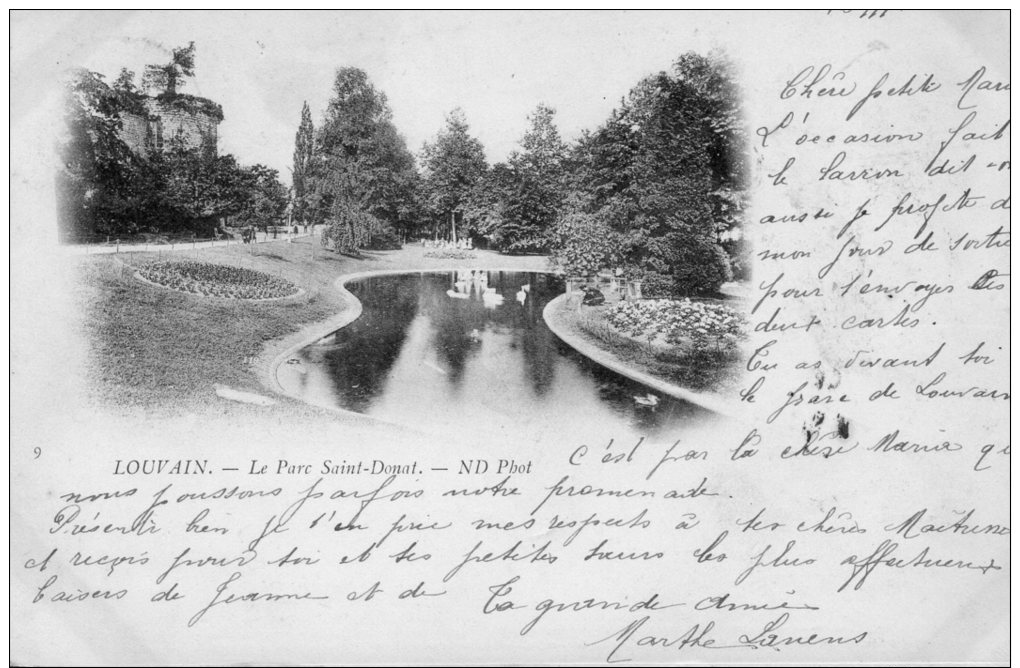 Chère petite Mar
L'occasion fait
le larron dit-o
aussi je profite d
mon jour de sortie
pour t'envoyer tes
deux cartes.
Tu as devant toi
le parc de Louvain
c'est par là chère Maria qu
nous poussons parfois notre promenade.
9
LOUVAIN. — Le Parc Saint-Donat. — ND Phot
Présente bien je t'en prie mes respects à tes chères Maîtresses
et reçois pour toi et tes petites sœurs les plus affectueux
baisers de Jeanne et de Ta grande Amie
Marthe